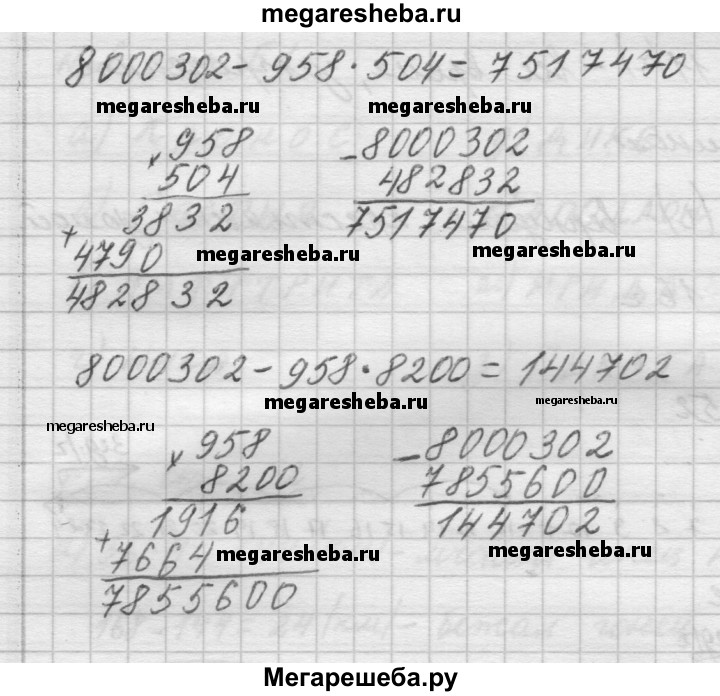 megaresheba.ru
8000302 - 958 · 504 = 7517470
megaresheba.ru megaresheba.ru
× 958 - 8000302
504 482832
3832 7517470
+ 4790 megaresheba.ru megaresheba.ru
482832
8000302 - 958 · 8200 = 144702
megaresheba.ru megaresheba.ru megaresheba.ru
× 958 - 8000302
8200 7855600
1916 144702
+ 7664 megaresheba.ru megaresheba.ru
7855600
Мегарешеба.ру